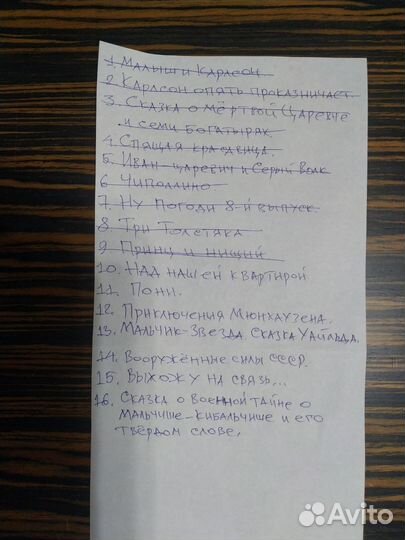 1. Малыш и Карлсон
2. Карлсон опять проказничает.
3. Сказка о мёртвой царевне
и семи богатырях
4. Спящая красавица.
5. Иван-царевич и Серый Волк
6. Чиполлино
7. Ну погоди 8-й выпуск.
8. Три Толстяка
9. Принц и нищий
10. Над нашей квартирой
11. Пони.
12. Приключения Мюнхаузена.
13. Мальчик-Звезда. Сказка Уайльда.
14. Вооружённые силы СССР.
15. Выхожу на связь...
16. Сказка о военной тайне о
мальчише-кибальчише и его
твёрдом слове.
Avito